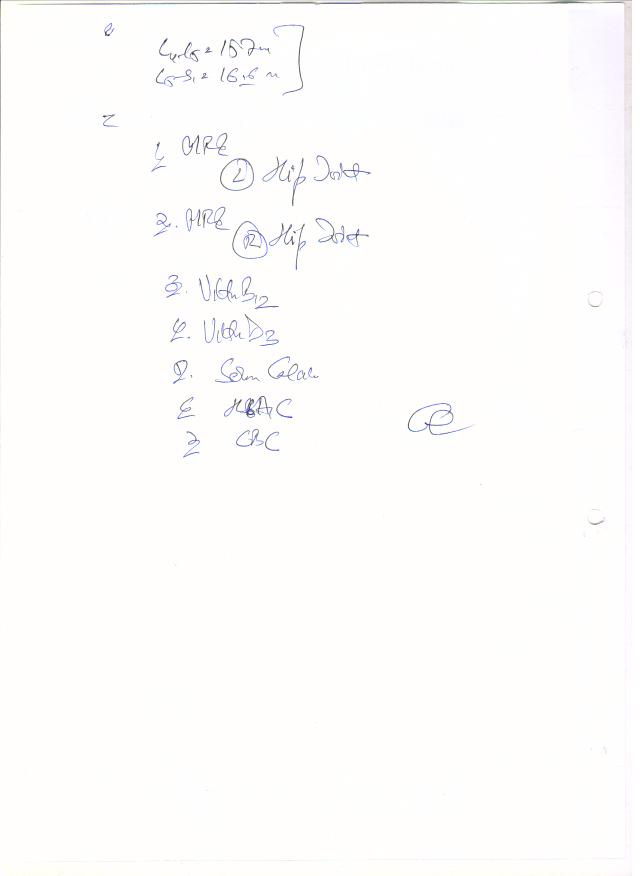 L4-L5 = 15.7m
L5-S1 = 16.6 m
1. MRI
(L) Hip Joint
2. MRI
(R) Hip Joint
3. Vitn B12
4. Vitn D3
5. Serum Calcium
6. HbA1C
7 CBC